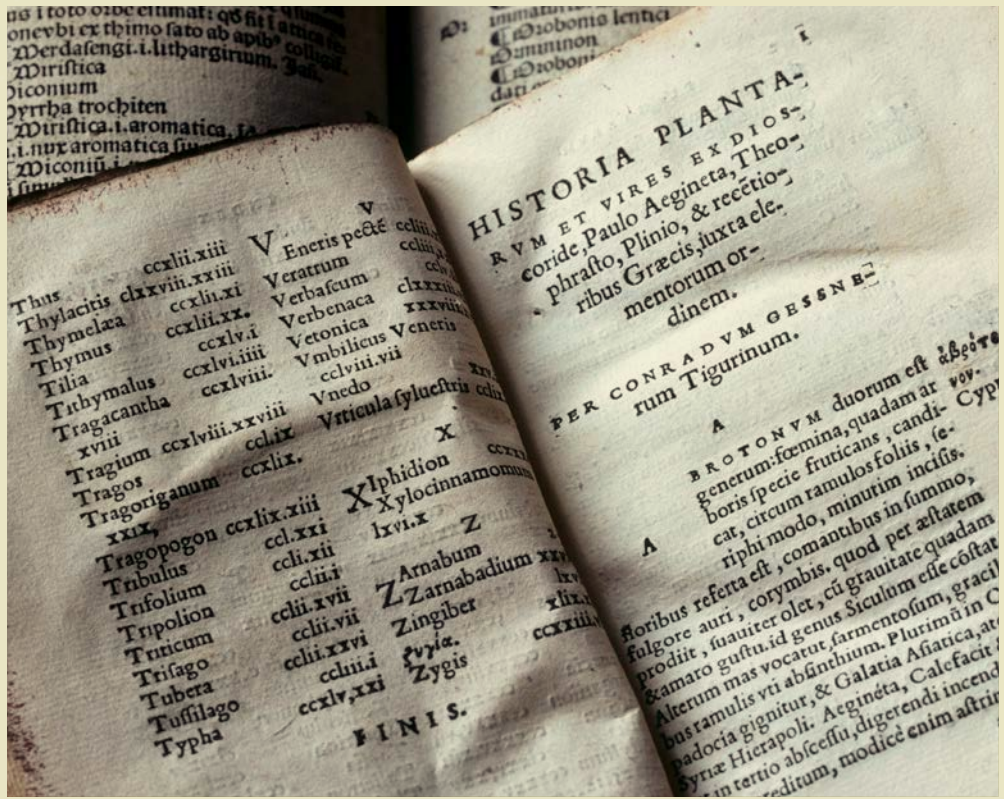 us i toto orbe estimat: qđ fit i attica
onevbi ex thimo sato ab apibꝰ colligit.
Merdasengi.i.lithargirum.
Miristica
iconium
yrrha trochiten
Miristica.i.aromatica,
.i.nux aromatica
Miconiū.i.
immatur
Orobonis lentici
Omininon
Oroboni
Thus ccxlii.xiii
Thylacitis clxxviii.xxiii
Thymelæa ccxlii.xi
Thymus ccxlii.xx.
Tilia ccxlv.i
Tithymalus ccxlvi.iiii
Tragacantha ccxlviii.
xviii
Tragium ccxlviii.xxviii
Tragos ccl.ix
Tragoriganum ccxlix.
xxix,
Tragopogon ccxlix.xiii
Tribulus ccl.xxi
Trifolium ccli.xii
Tripolion cclii.i
Triticum cclii.xvii
Trisago cclii.vii
Tubera cclii.xxvi
Tussilago ccliii.i
Typha ccxlv,xxi
V
V Eneris pectē
Veratrum
Verbascum
Verbenaca
Vetonica
Vmbilicus Veneris
cclviii.vii
Vnedo
Vrticula syluestris
X
XIphidion
Xylocinnamomum
lxvi.x
Z
ZArnabum
Zarnabadium
Zingiber
ζυγία.
Zygis
FINIS.
1
HISTORIA PLANTA-
RVM ET VIRES EX DIOS-
coride, Paulo Aegineta, Theo-
phrasto, Plinio, & recētio-
ribus Græcis, iuxta ele-
mentorum or-
dinem.
PER CONRADVM GESSNE-
rum Tigurinum.
A
A BROTONVM duorum est ἀβρότο
generum: fœmina, quadam ar νον.
boris specie fruticans, candi- Cyp
cat, circum ramulos foliis, se-
riphi modo, minutim incisis.
floribus referta est, comantibus in summo,
fulgore auri, corymbis. quod per æstatem
prodiit, suauiter olet, cū grauitate quadam
& amaro gustu. id genus Siculum esse cōstat
Alterum mas vocatur, sarmentosum, gracil
bus ramulis vti absinthium. Plurimū in C
padocia gignitur, & Galatia Asiatica, at
Syriæ Hierapoli. Aeginéta, Calefacit
in tertio abscessu, digerendi incend
reditum, modicè enim astrin